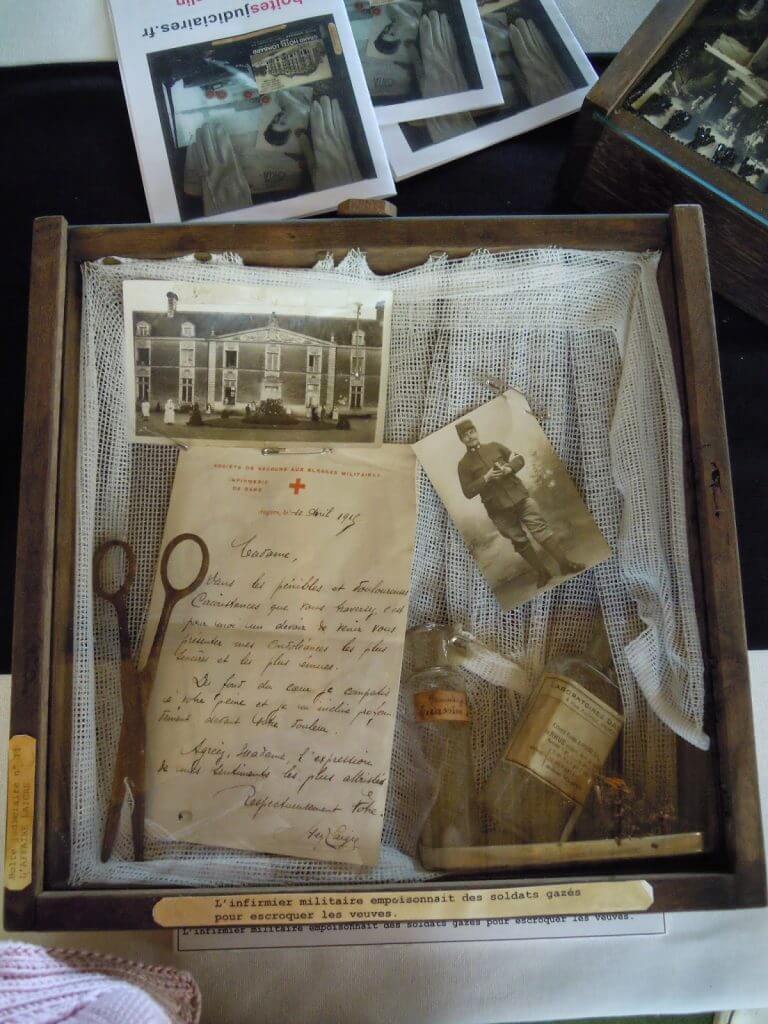 boitesjudiciaires.fr
GRAND HÔTEL
SOCIÉTÉ DE SECOURS AUX BLESSÉS MILITAIRES
INFIRMERIE
DE GARE
Avril 191
Madame,
Dans les pénibles et douloureuses
Circonstances que vous traversez c'est
pour moi un devoir de venir vous
présenter mes condoléances les plus
sincères et les plus émues.
Du fond du cœur je compatis
à votre peine et je m'incline profon
dément devant votre douleur.
Agréez, Madame, l'expression
de mes sentiments les plus attristés
Respectueusement Votre.
LABORATOIRES
Boîte judiciaire n°
L'AFFAIRE
L'infirmier militaire empoisonnait des soldats gazés
pour escroquer les veuves.
L'infirmier militaire empoisonnait des soldats gazés pour escroquer les veuves.